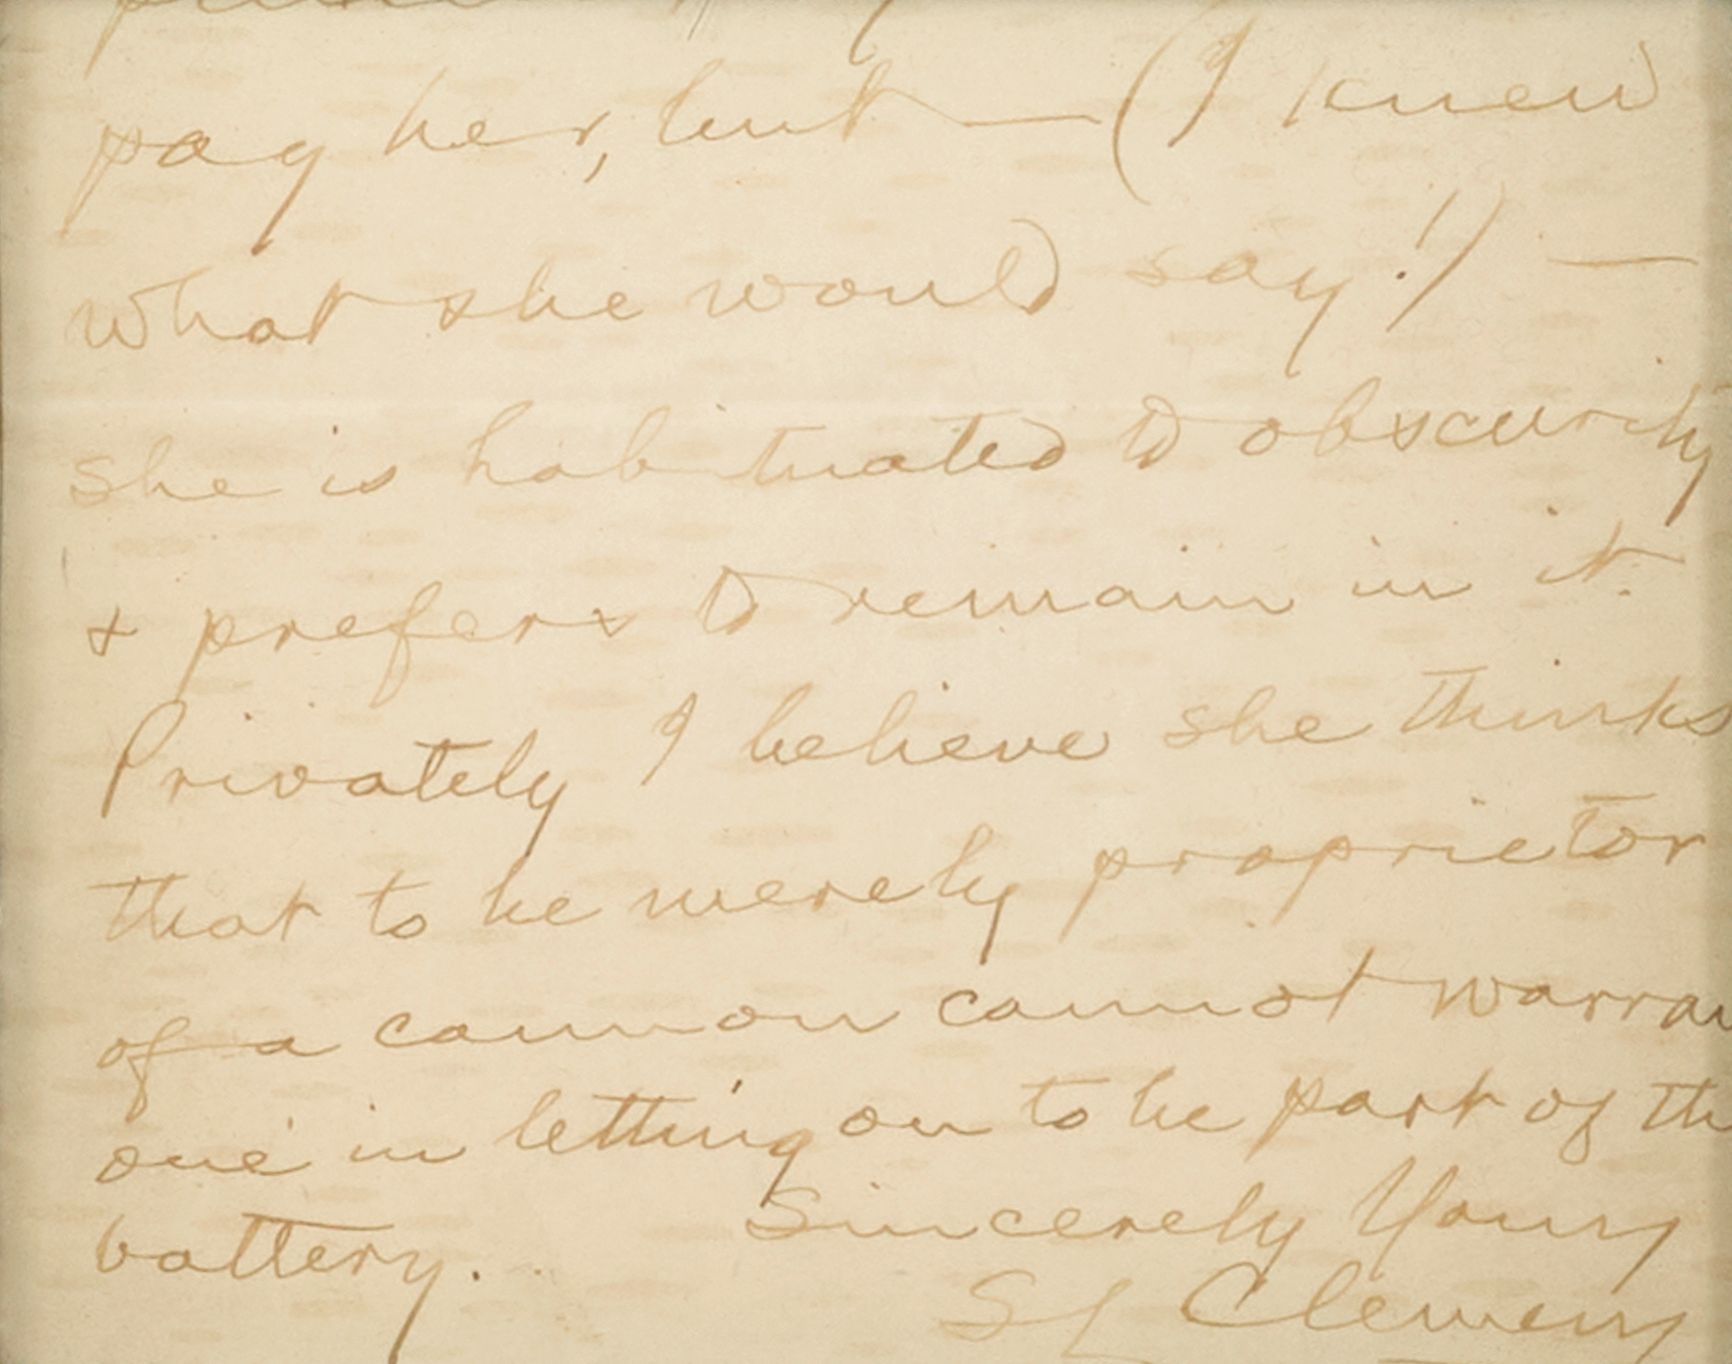 pay her, but — (I knew
what she would say!) —
she is habituated to obscurity
& prefers to remain in it.
Privately I believe she thinks
that to be merely proprietor
of a cannon cannot warran
one in letting on to be part of th
battery. Sincerely Yours
SL Clemens